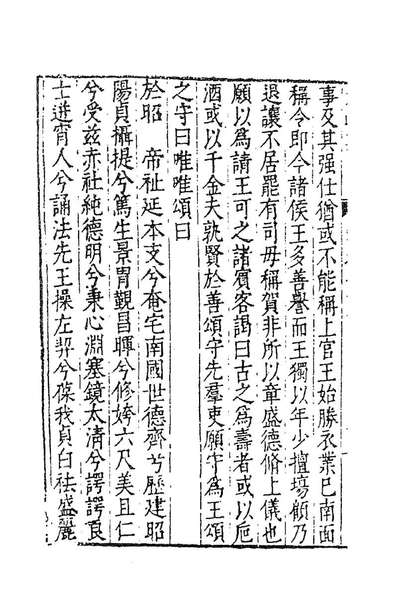 事及其强仕猶或不能稱上官王始勝衣業已南面
稱令即今諸侯王多善譽而王獨以年少擅塲顧乃
退讓不居罷有司毋稱賀非所以章盛德脩上儀也
願以爲請王可之諸賓客謁曰古之爲壽者或以巵
酒或以千金夫孰賢於善頌守先羣吏願守爲王頌
之守曰唯唯頌曰
於昭　帝祉延本支兮奄宅南國世德齊兮歷建昭
陽貞攝提兮篤生景胄觀昌暉兮修姱六尺美且仁
兮受兹赤社純德明兮秉心淵塞鏡太清兮諤諤良
士逬宵人兮誦法先王操左契兮葆我貞白袪盛麗